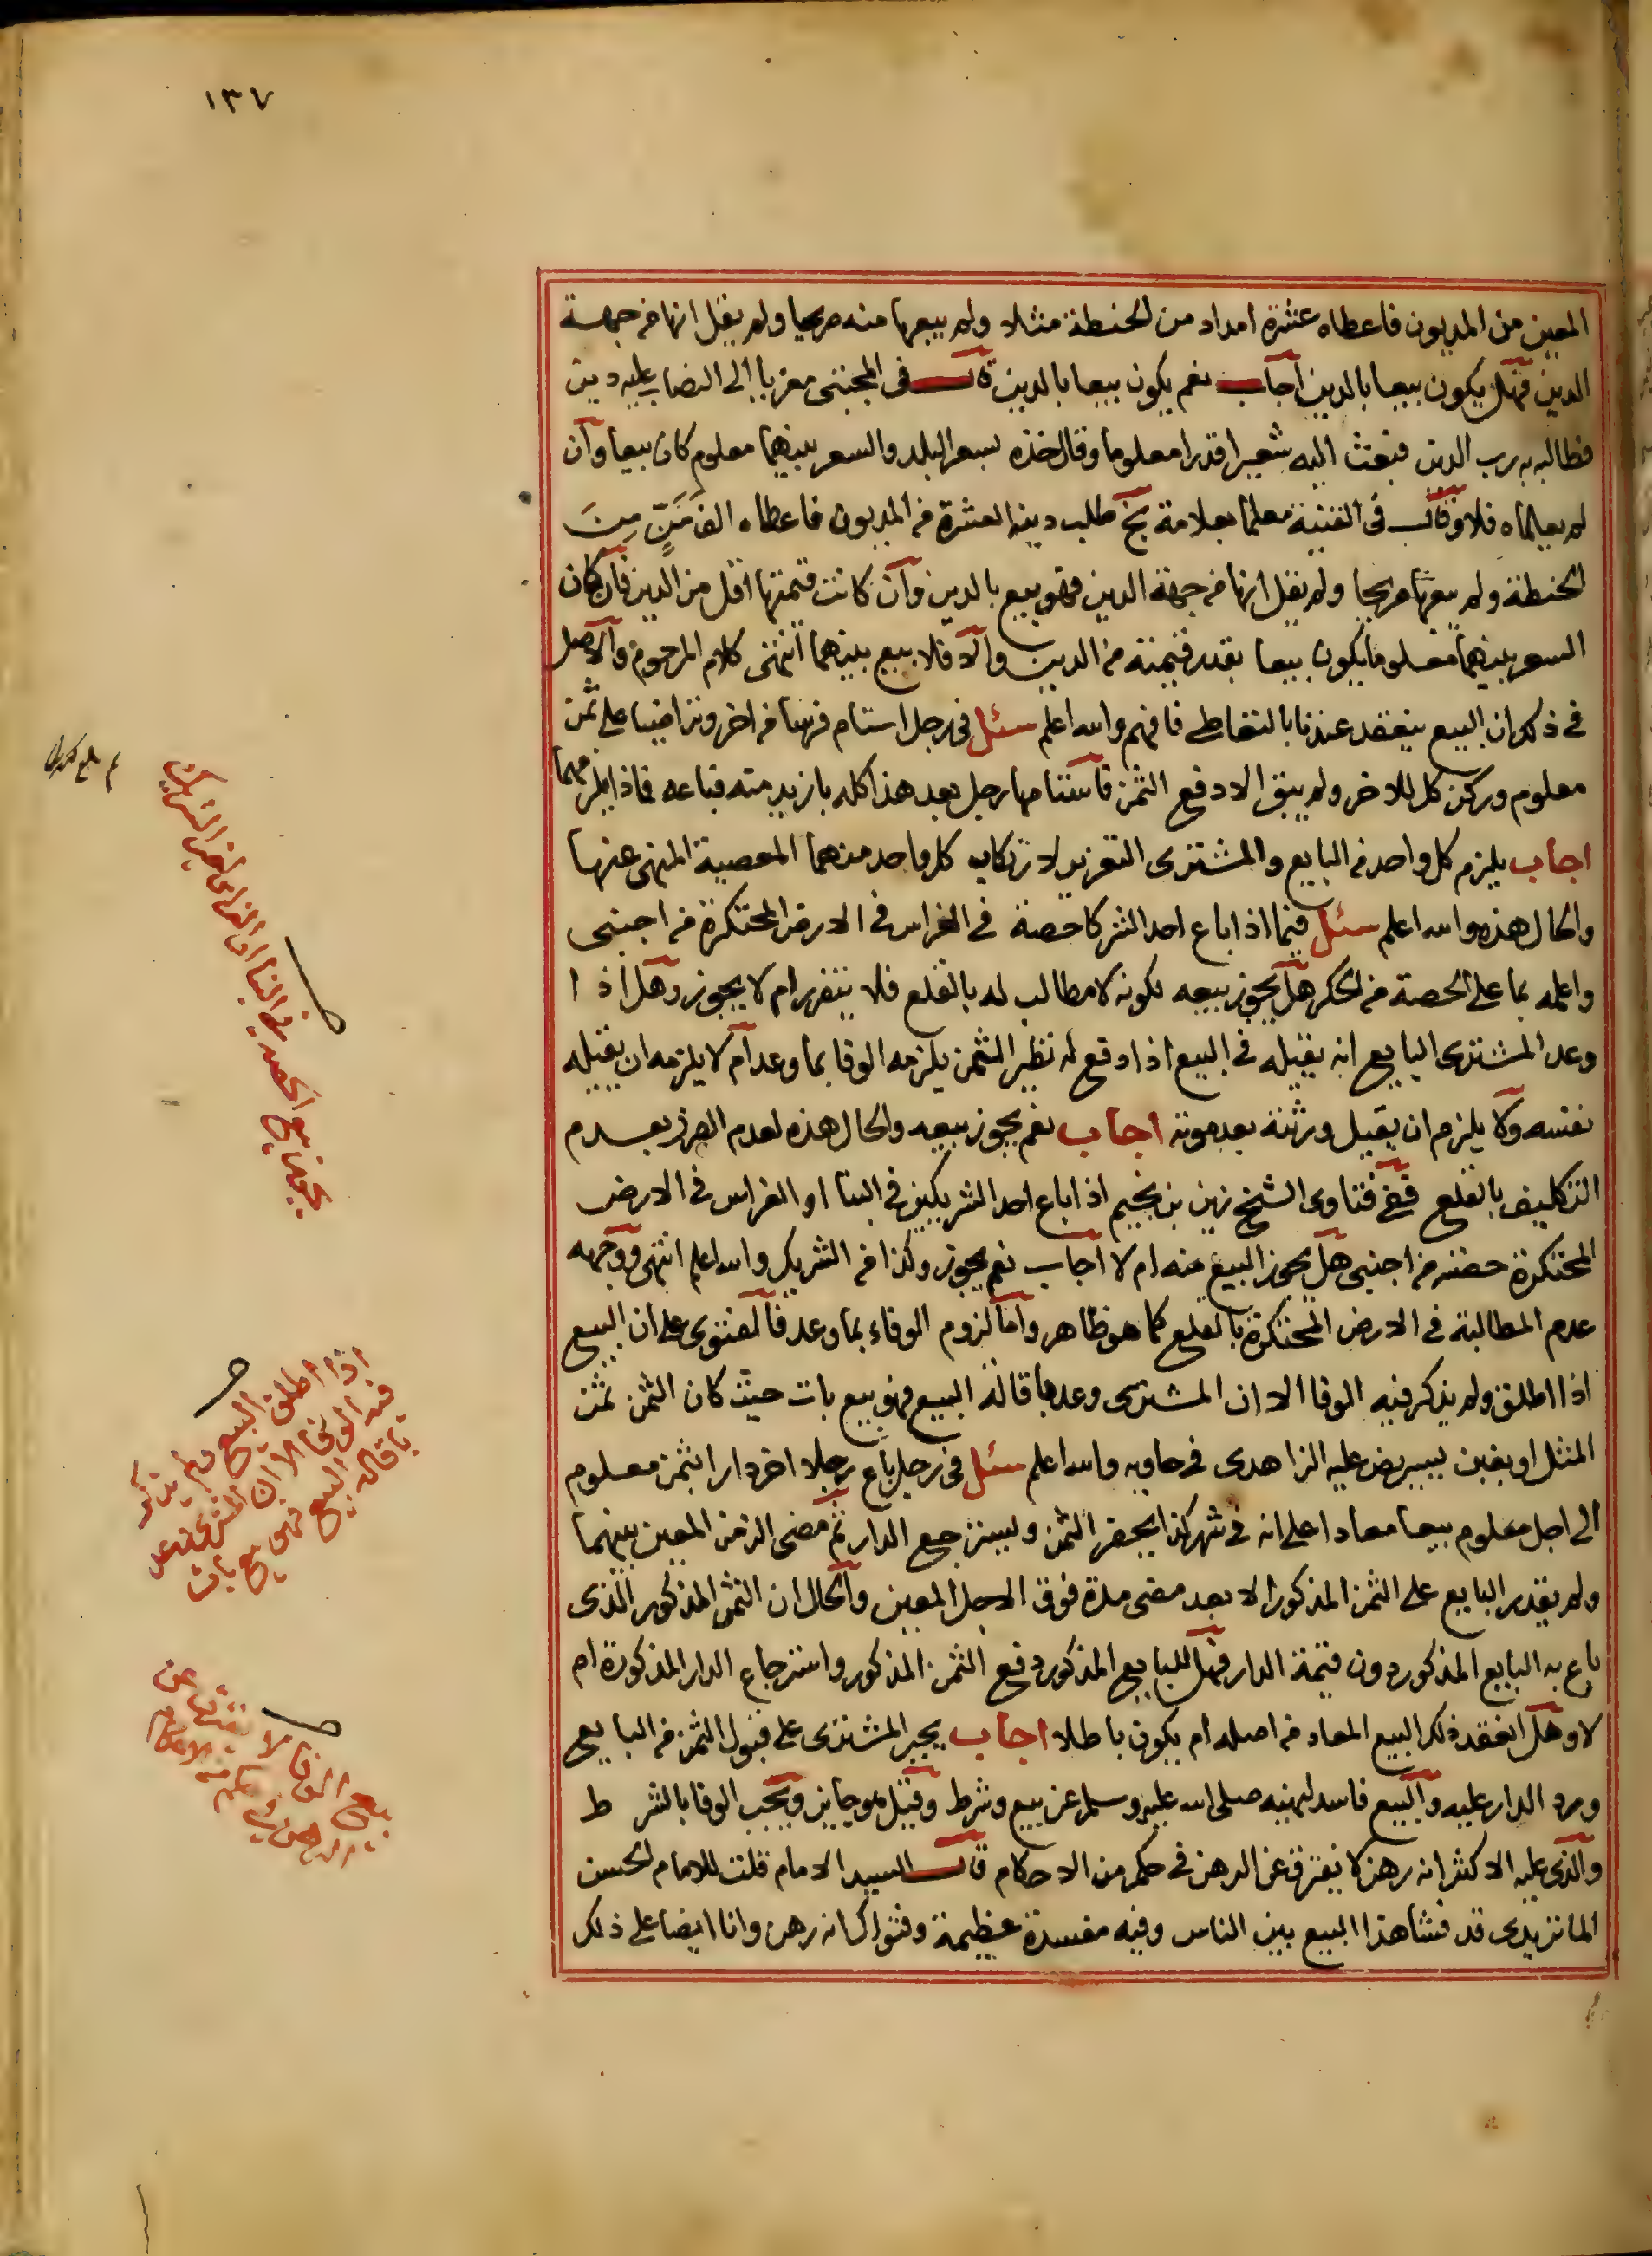 ١٣٧
المعين من المديون فاعطاه عشرة امداد من الحنطة مثلا ولم يبيعها منه صريحا ولم يقل انها من جهة
الدين فهل يكون بيعا بالدين اجاب نعم يكون بيعا بالدين قال فى المجتبى معزيا الى النصاب عليه دين
فطالبه به رب الدين فبعث اليه شعيرا قدرا معلوما وقال خذه بسعر البلد والسعر بينهما معلوم كان بيعا وان
لم يعلماه فلا وقال فى القنية معلما بعلامة بخ طلب دينه العشرة من المديون فاعطاه الف مَنٍّ مِنَ
الحنطة ولم يبعها صريحا ولم يقل انها من جهة الدين فهو بيع بالدين وان كانت قيمتها اقل من الدين فان كان
السعر بينهما معلوما يكون بيعا بقدر قيمته من الدين والا فلا بيع بينهما انتهى كلام المرحوم والاصل
فى ذلك ان البيع ينعقد عندنا بالتعاطى فافهم والله اعلم سئل فى رجل استام فرسا من اخر وتراضيا على ثمن
معلوم وركن كل للاخر ولم يبق الا دفع الثمن فاستامها رجل بعد هذا كله بازيد منه فباعه فماذا يلزمهما
اجاب يلزم كل واحد من البايع والمشترى التعزير لارتكاب كل واحد منهما المعصية المنهى عنها
والحال هذه والله اعلم سئل فيما اذا باع احد الشركا حصة فى الغراس فى الارض المحتكرة من اجنبى
واعلمه بما على الحصة من الحكر هل يجوز بيعه لكونه لا مطالب له بالقلع فلا يتضرر ام لا يجوز وهل اذا
وعد المشترى البايع انه يقيله فى البيع اذا دفع له نظير الثمن يلزمه الوفا بما وعد ام لا يلزمه ان يقيله
نفسه ولا يلزم ان يقيل ورثته بعد موته اجاب نعم يجوز بيعه والحال هذه لعدم الضرر بعدم
التكليف بالقلع ففى فتاوى الشيخ زين بن نجيم اذا باع احد الشريكين فى البنا او الغراس فى الارض
المحتكرة حصته من اجنبى هل يجوز البيع منه ام لا اجاب نعم يجوز وكذا من الشريك والله اعلم انتهى ووجهه
عدم المطالبة فى الارض المحتكرة بالقلع كما هو ظاهر واما لزوم الوفاء بما وعد فالفتوى على ان البيع
اذا اطلق ولم يذكر فيه الوفا الا ان المشترى وعد باقالة البيع فهو بيع بات حيث كان الثمن ثمن
المثل او بغبن يسير نص عليه الزاهدى فى حاويه والله اعلم سئل فى رجل باع رجلا اخر دارا بثمن معلوم
الى اجل معلوم بيعا معادا على انه فى شهر كذا يحضر الثمن ويسترجع الدار ثم مضى الزمن المعين بينهما
ولم يقدر البايع على الثمن المذكور الا بعد مضى مدة فوق الاجل المعين والحال ان الثمن المذكور الذى
باع به البايع المذكور دون قيمة الدار فهل للبايع المذكور دفع الثمن المذكور واسترجاع الدار المذكورة ام
لا وهل انعقد ذلك البيع المعاد من اصله ام يكون باطلا اجاب يجبر المشترى على قبول الثمن من البايع
ورد الدار عليه والبيع فاسد لنهيه صلى الله عليه وسلم عن بيع وشرط وقيل هو جايز ويجب الوفا بالشرط
والذى عليه الاكثر انه رهن لا يفترق عن الرهن فى حكم من الاحكام قال السيد الامام قلت للامام الحسن
الماتريدى قد فشا هذا البيع بين الناس وفيه مفسدة عظيمة وفتواك انه رهن وانا ايضا على ذلك
يجوز بيع الحصة فى البنا او الغراس لغير الشريك
اذا اطلق البيع ولم يذكر
فيه الوفا الا ان المشترى وعد
باقالة البيع فهو بيع بات
بيع الوفا لا يفترق عن
الرهن فى حكم من الاحكام